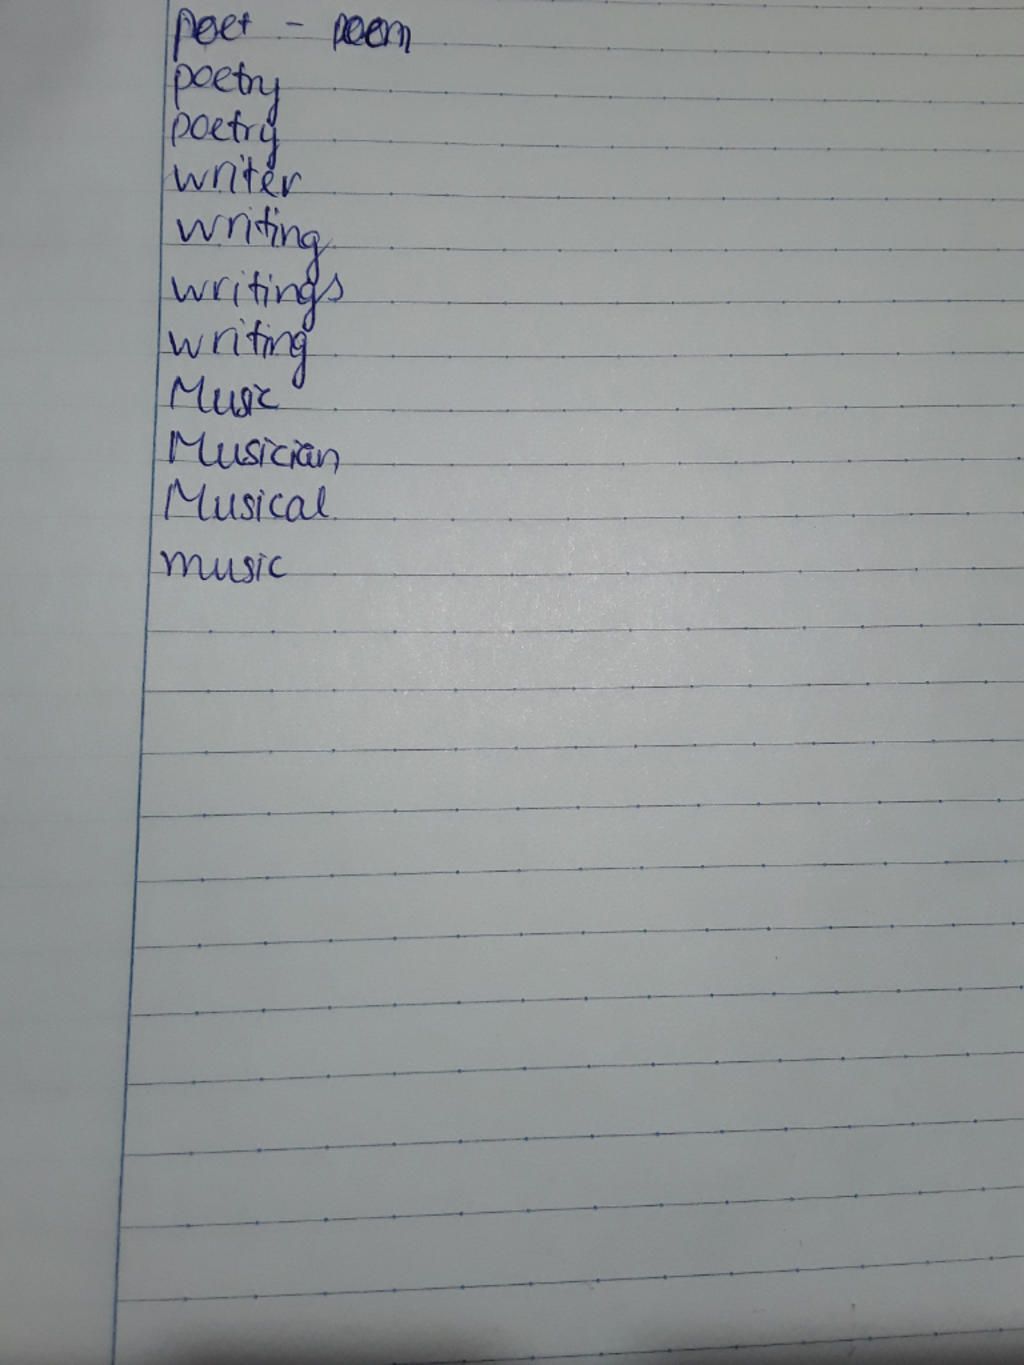 poet - poem
poetry
poetry
writer
writing
writings
writing
Music
Musician
Musical
music